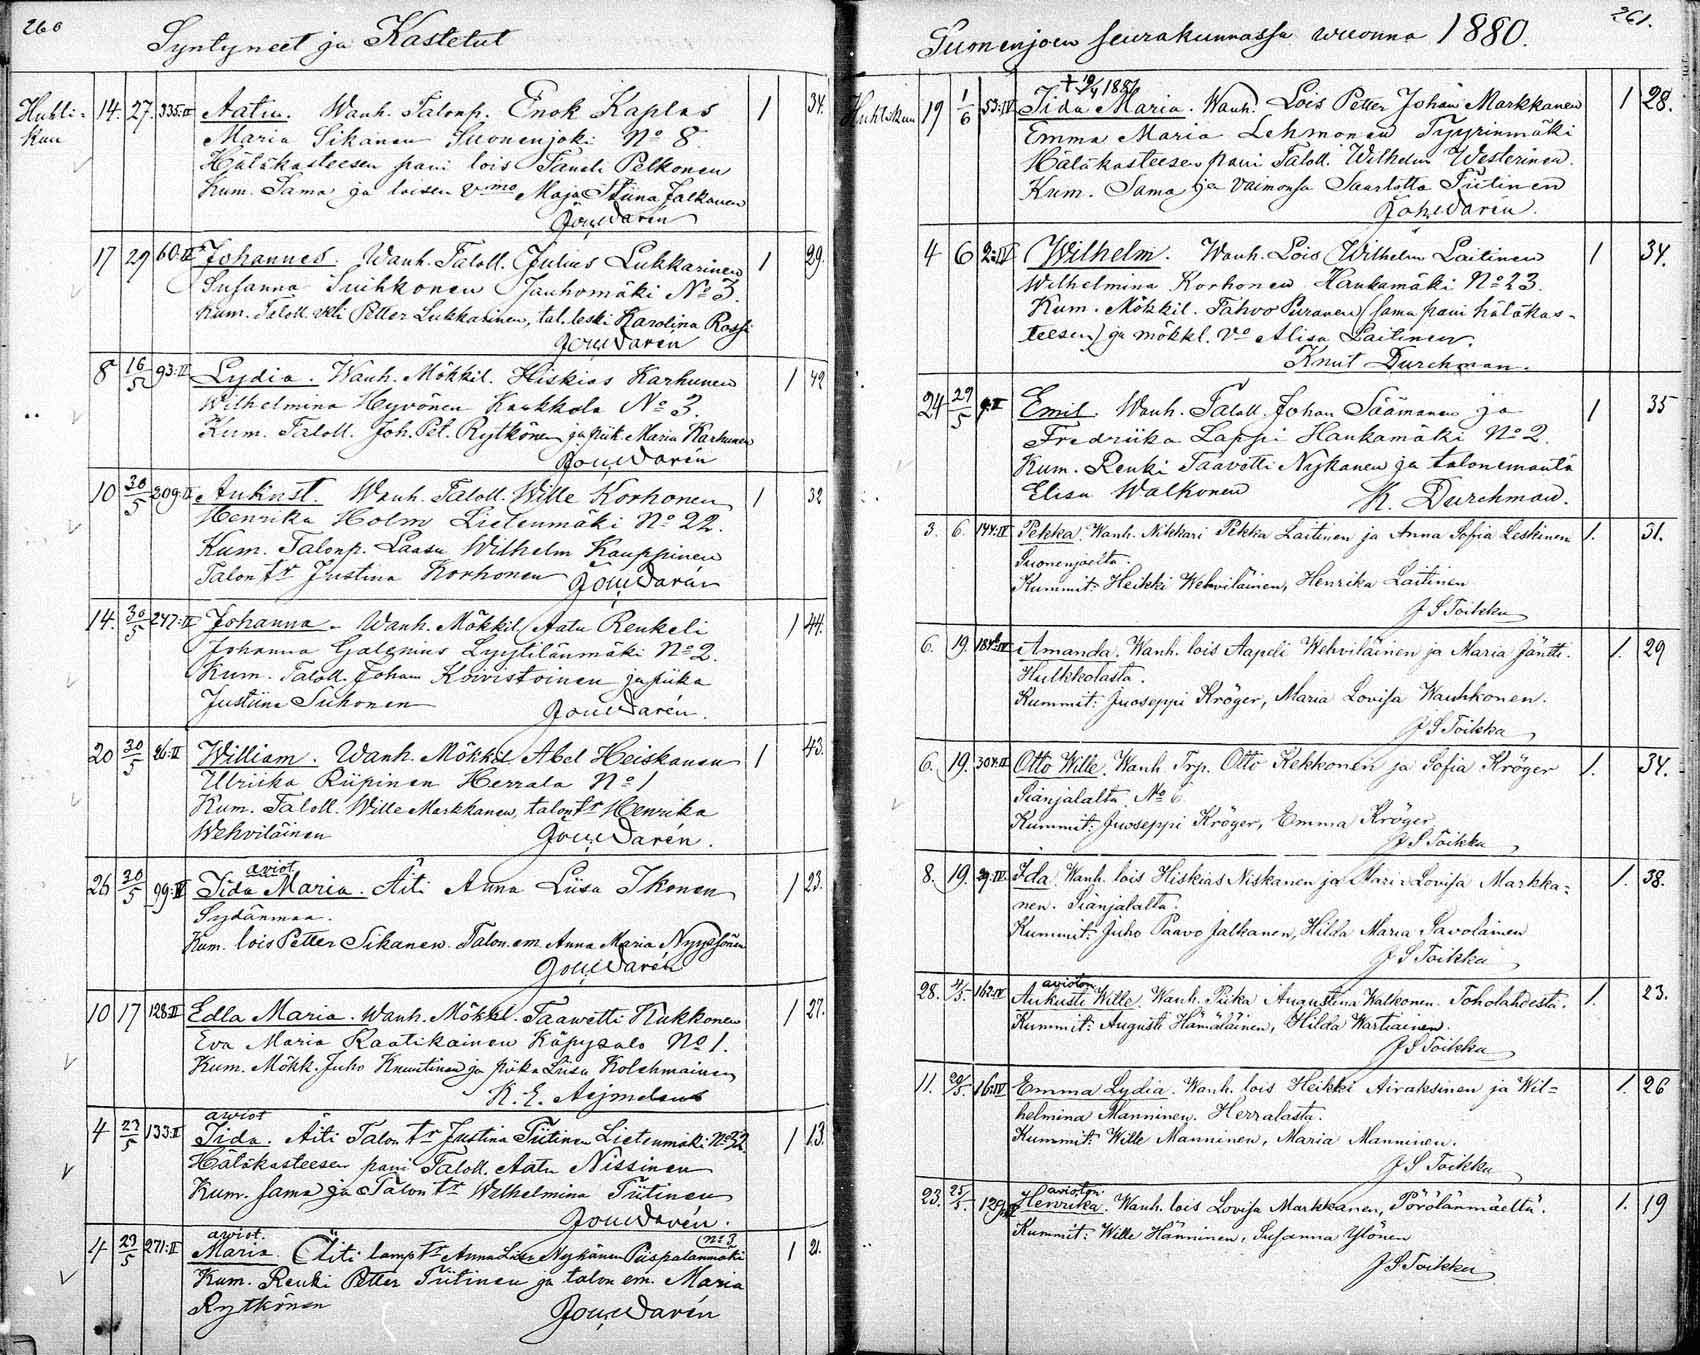 260
Syntyneet ja Kastetut
Huhti-
kuu
14. 27. 335:II Aatu. Wanh. Talonp. Enok Kaplas 1 34.
Maria Sikanen Suonenjoki No 8.
Hätäkasteesen pani lois Taneli Pelkonen
Kum. Sama ja loisen vmo Maja Stiina Jalkanen
Joh. W. Darén
17 29 60:II Johannes. Wanh. Taloll. Julius Lukkarinen 1 29.
Susanna Suihkonen Jauhomäki No 3.
Kum. Taloll. veli Petter Lukkarinen, tal. leski Karolina Rossi
Joh. W. Darén
8 16/5 93:II Lydia. Wanh. Mökkil. Hiskias Karhunen 1 42
Wilhelmina Hyvönen Karkkola No 3.
Kum. Taloll. Joh. Pet. Rytkönen ja piik. Maria Karhunen
Joh. W. Darén
10 30/5 209:II Aukust. Wanh. Taloll. Wille Korhonen 1 32
Henrika Holm Lietenmäki No 22.
Kum. Talonp. Laasu Wilhelm Kauppinen
Talon tr Justina Korhonen Joh. W. Darén
14. 30/5 247:II Johanna. Wanh. Mökkil. Aatu Renkeli 1 44.
Johanna Galenius Lyytilänmäki No 2.
Kum. Taloll. Johan Koivistoinen ja piika
Justiina Suhonen Joh. W. Darén.
20 30/5 26:II William. Wanh. Mökkil. Abel Heiskanen 1 43.
Ulriika Riipinen Herrala No 1
Kum. Taloll. Wille Markkanen, talon tr Henrika
Wehviläinen Joh. W. Darén.
aviot.
26 30/5 99:IV Iida Maria. Äiti Anna Liisa Ikonen 1 23.
Sydänmaa.
Kum. lois Petter Sikanen. Talon em. Anna Maria Nyyssönen
Joh. W. Darén
10 17 128:II Edla Maria. Wanh. Mökkl. Taawetti Kukkonen 1 27.
Eva Maria Raatikainen Käpysalo No 1.
Kum. Mökk. Juho Knuutinen ja piika Liisa Kolehmainen
K. E. Aejmelæus
awiot
4 23/5 133:II Iida. Äiti Talon tr Justina Tiitinen Lietenmäki No 32. 1 13.
Hätäkasteesen pani Taloll. Aatu Nissinen
Kum. sama ja Talon tr Wilhelmina Tiitinen
Joh. W. Darén.
awiot. No 3
4 23/5 271:II Maria. Äiti lamp tr Anna Liisa Nykänen Piispalanmäki 1 21.
Kum. Renki Petter Tiitinen ja talon em. Maria
Rytkönen Joh. W. Darén
261.
Suonenjoen seurakunnassa wuonna 1880.
Huhtikuu
+ 19/4 1881
19 1/6 53:IV Iida Maria. Wanh. Lois Petter Johan Markkanen 1 28.
Emma Maria Lehmonen Tyyrinmäki
Hätäkasteesen pani Taloll. Wilhelm Westerinen.
Kum. Sama ja vaimonsa Saarlotta Tiitinen
Joh. W. Darén.
4 6 2:IV Wilhelm. Wanh. Lois Wilhelm Laitinen 1 34.
Wilhelmina Korhonen Haukamäki No 23.
Kum. Mökkil. Tahvo Puranen (sama pani hätäkas-
teesen) ja mökkl. vo Alisa Laitinen.
Knut Durchman.
24 29/5 9:II Emil. Wanh. Taloll. Johan Säämänen ja 1 35
Fredriika Lappi Haukamäki No 2.
Kum. Renki Taavetti Nykänen ja talonemäntä
Elisa Walkonen K. Durchman.
3. 6. 144:IV Pekka. Wanh. Nikkari Pekka Laitinen ja Anna Sofia Leskinen 1. 31.
Suonenjoelta.
Kummit: Heikki Wehviläinen, Henrika Laitinen
J S Toikka
6. 19. 184:IV Amanda. Wanh. lois Aapeli Wehviläinen ja Maria Jäntti. 1. 29
Hulkkolasta.
Kummit: Juoseppi Kröger, Maria Lovisa Wauhkonen.
J S Toikka
6. 19. 304:II Otto Wille. Wanh. Trp. Otto Kekkonen ja Sofia Kröger 1. 34.
Sianjalalta No 6
Kummit: Juoseppi Kröger, Emma Kröger
J S Toikka
8. 19. 39:IV Ida. Wanh. lois Hiskias Niskanen ja Mari Lovisa Markka= 1. 38.
nen. Sianjalalta.
Kummit: Juho Paavo Jalkanen, Hilda Maria Savolainen
J S Toikka
avioton
28. 4/5. 162:IV Aukusti Wille. Wanh. Piika Augustina Walkonen. Toholahdesta. 1. 23.
Kummit: Augusti Hämäläinen, Hilda Wartiainen.
J S Toikka
11. 20/5. 16:IV Emma Lydia. Wanh. lois Heikki Airaksinen ja Wil= 1. 26
helmina Manninen. Herralasta.
Kummit: Wille Manninen, Maria Manninen.
J S Toikka
avioton
23. 25/5. Henrika. Wanh. lois Lovisa Markkanen, Pörölänmäeltä. 1. 19
Kummit: Wille Hänninen, Susanna Ylönen
J S Toikka